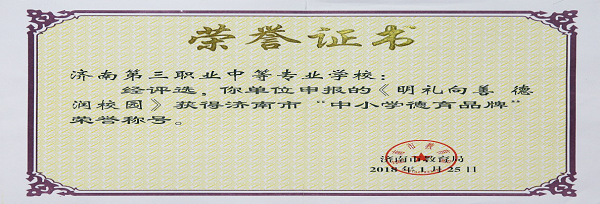 荣誉证书
济南第三职业中等专业学校：
经评选，你单位申报的《明礼向善 德
润校园》获得济南市“中小学德育品牌”
荣誉称号。
济南市教育局
2018年1月25日